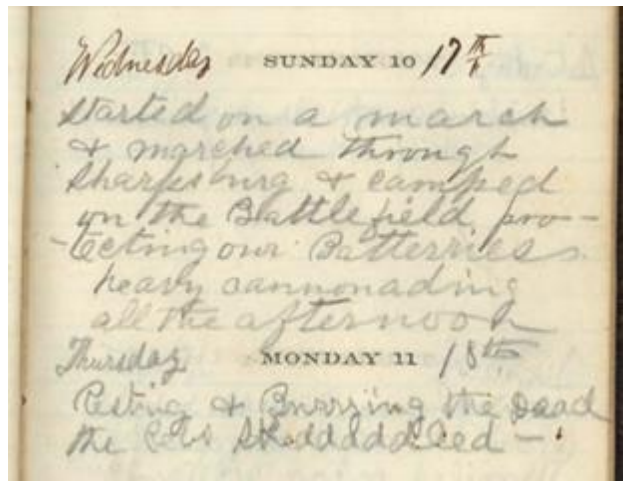 Wednesday SUNDAY 10 17th
Started on a march
& marched through
Sharpsburg & camped
on the Battlefield pro-
-tecting our Batterries
heavy cannonading
all the afternoon
Thursday MONDAY 11 18th
Resting & Burrying the Dead
the Rebs Skeddaddled -.